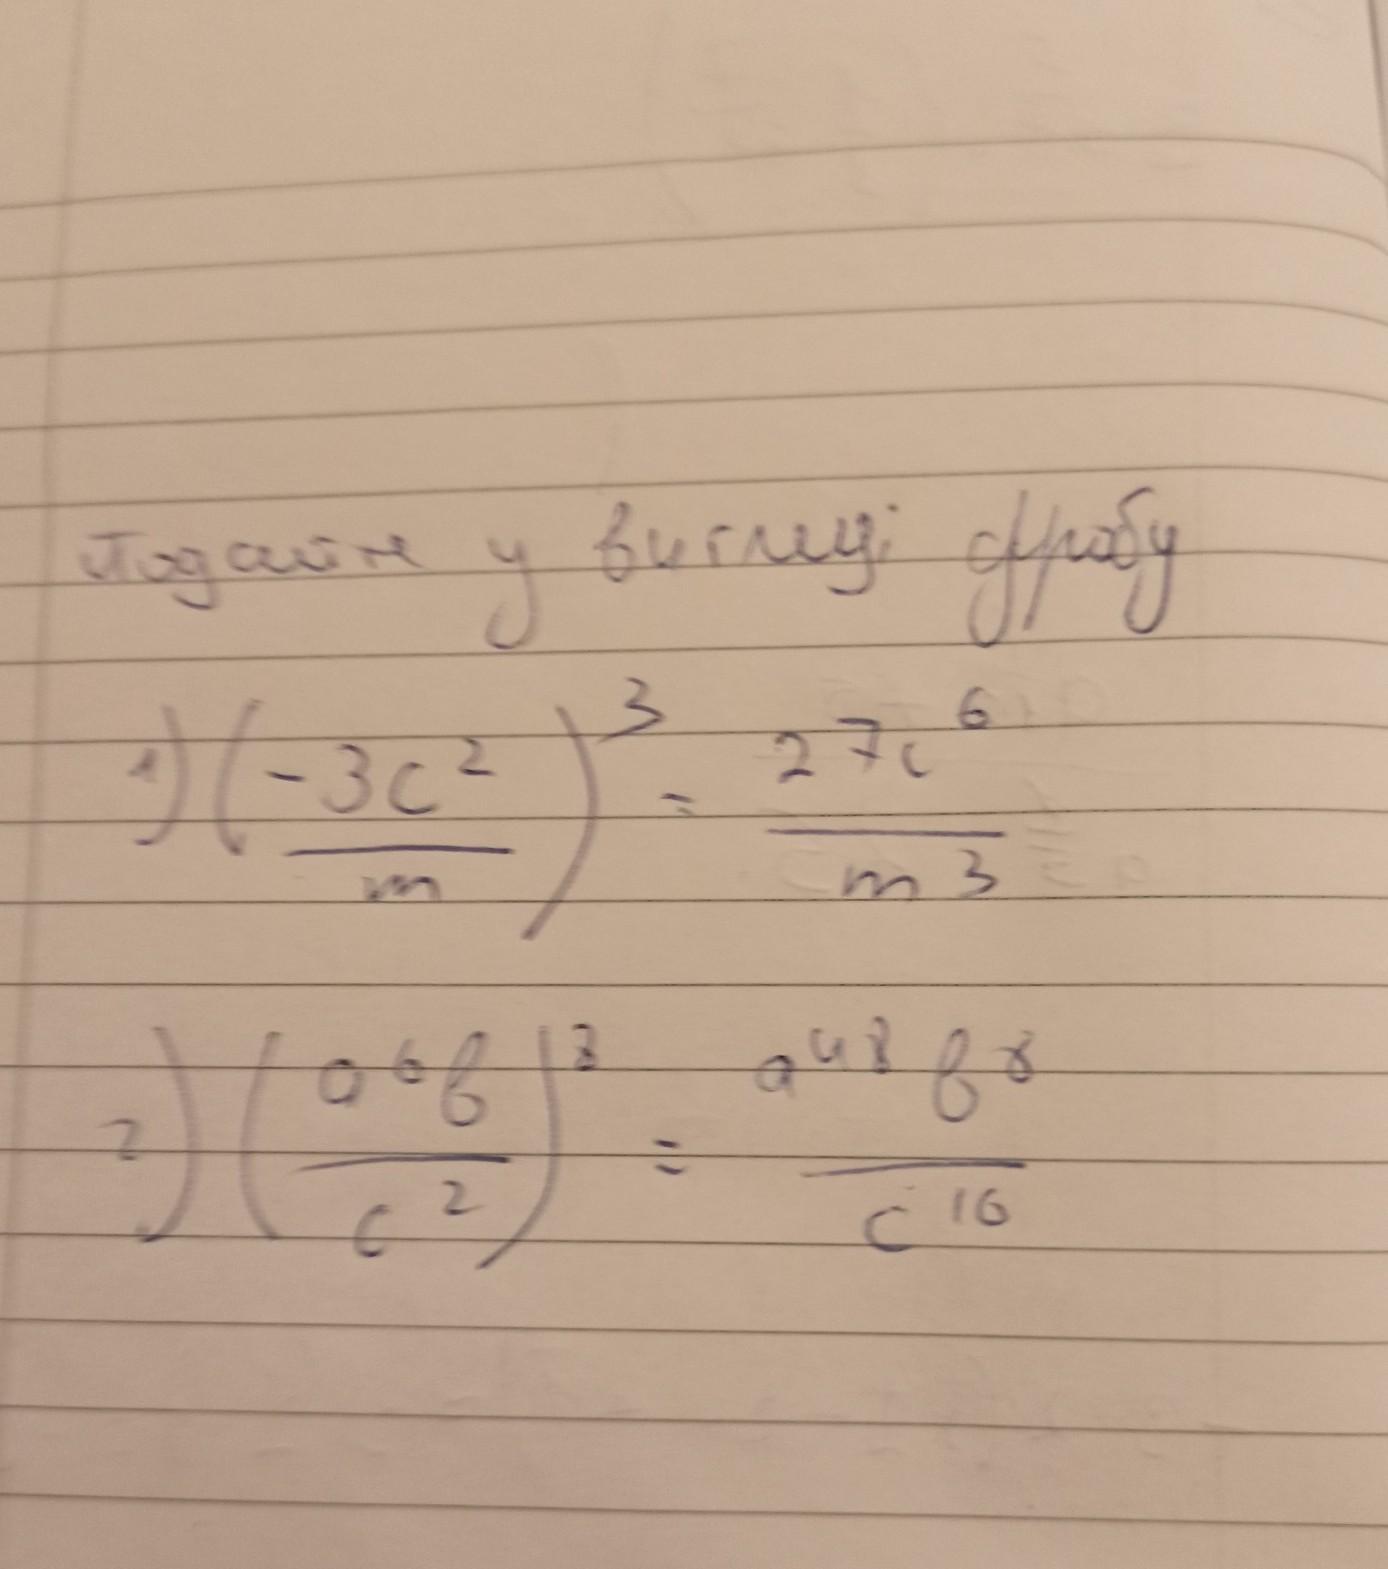 Подайте у вигляді дробу
1) (-3c²/m)³ = 27c⁶/m³
2) (a⁶b/c²)⁸ = a⁴⁸b⁸/c¹⁶